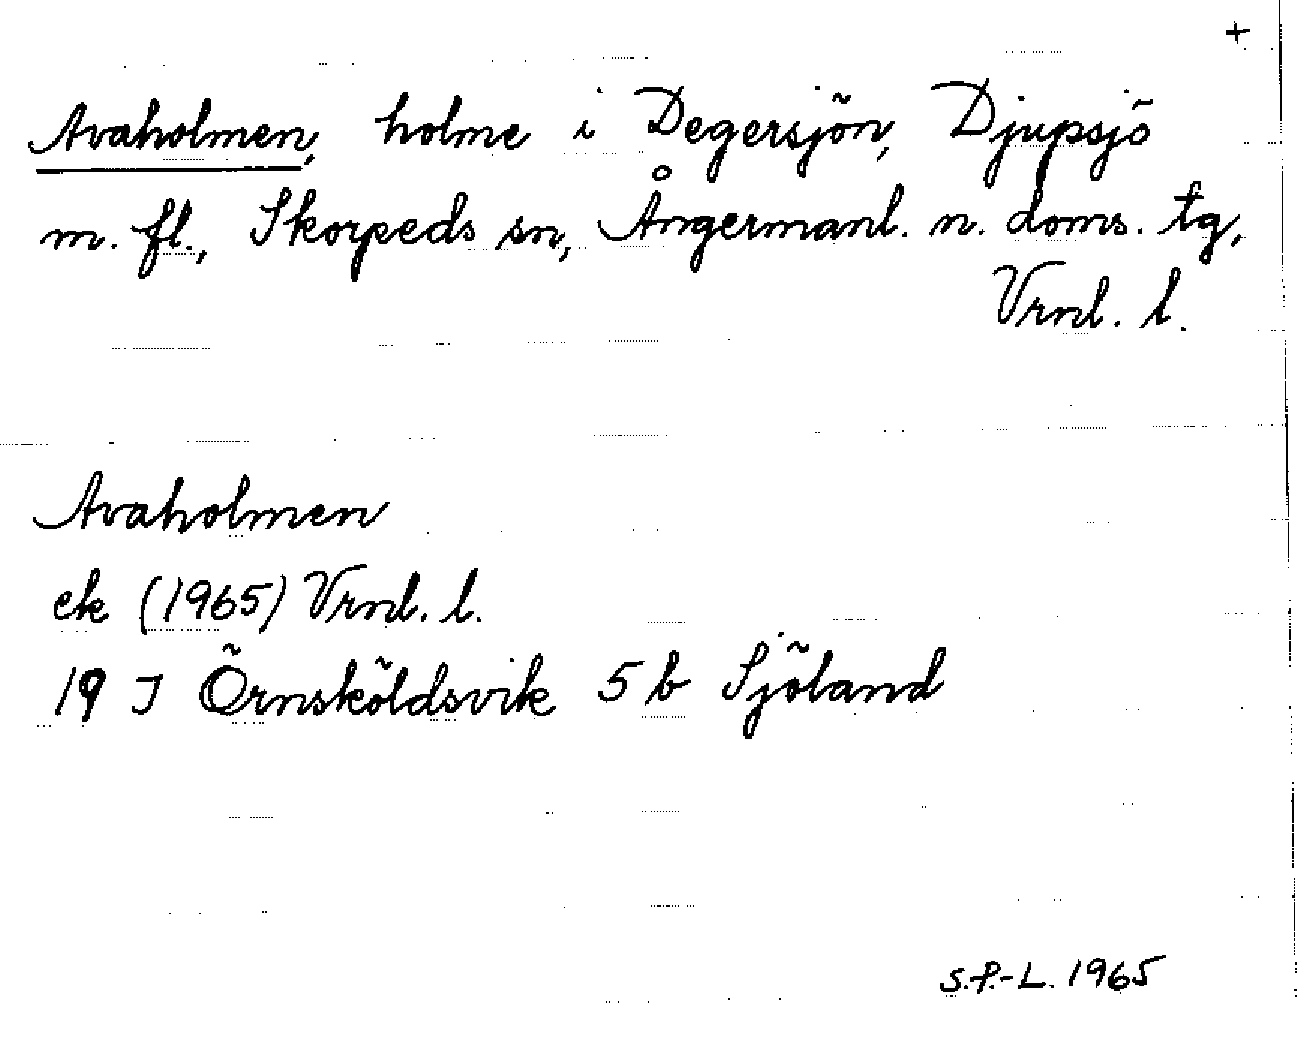 +
Avaholmen, holme i Degersjön, Djupsjö
m. fl., Skorpeds sn, Ångermanl. n. doms. tg,
Vrnl. l.
Avaholmen
ek (1965) Vrnl. l.
19 J Örnsköldsvik 5 b Sjöland
S.P.-L. 1965